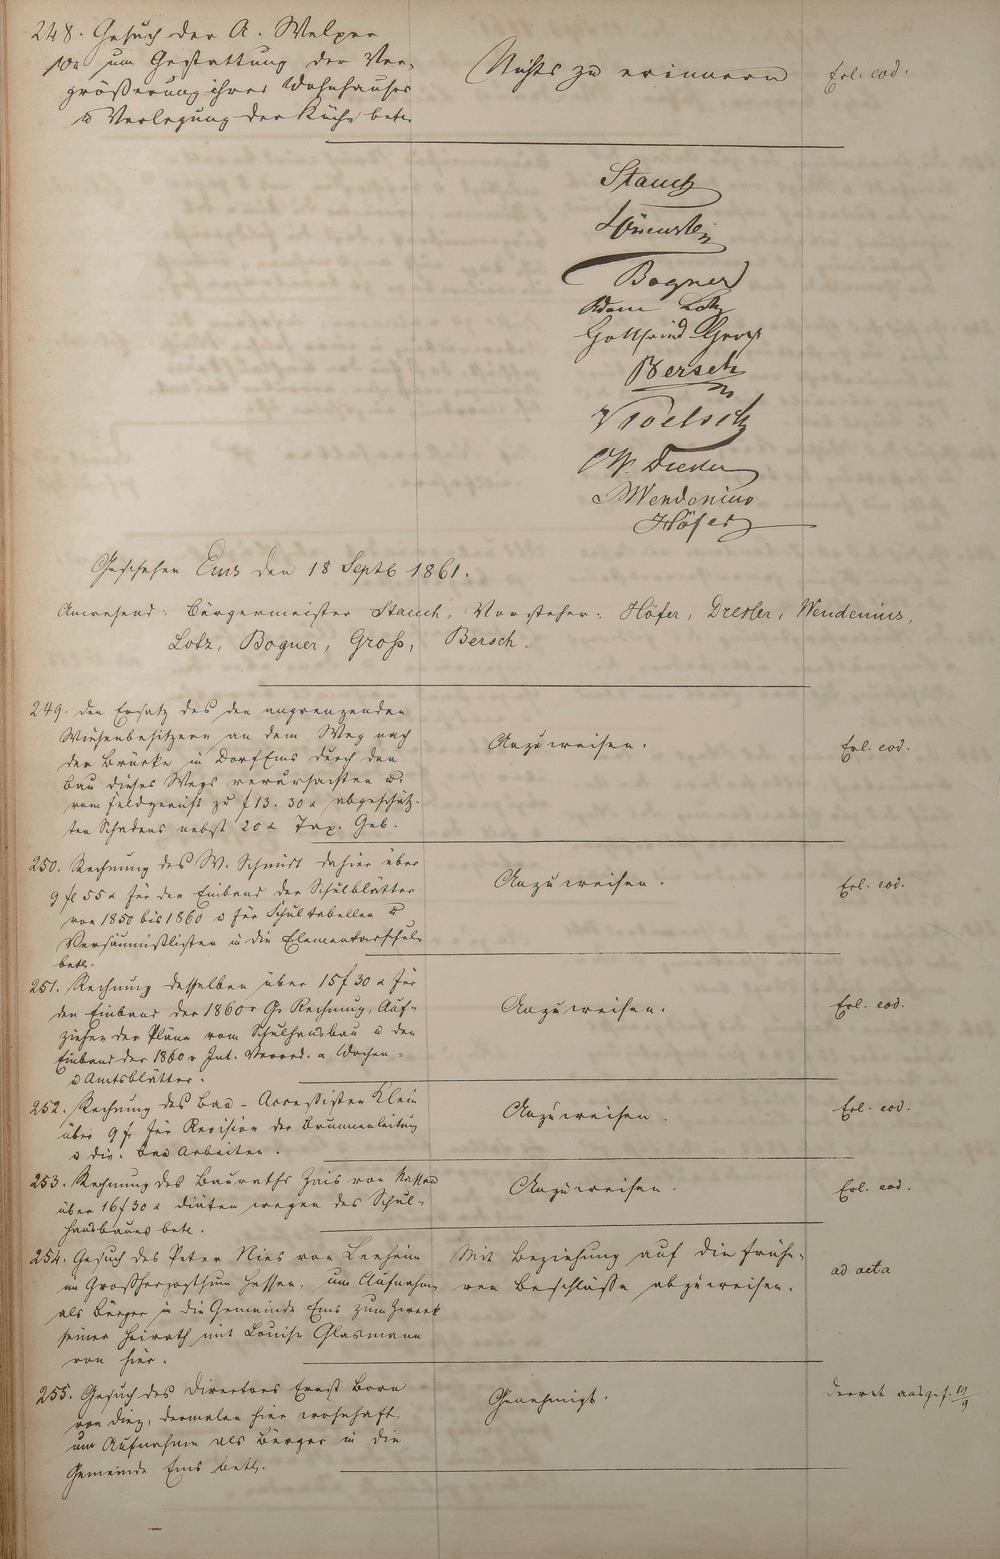 248. Gesuch der A. Welper
um Gestattung der Ver-
größerung ihres Wohnhauses
u Verlegung der Küche betr.
Nichts zu erinnern
Erl. eod.
Stauch
Bogner
Adam Lotz
Gottfried Gross
Bersch
CW. Dresler
Wendenius
Höfer
Geschehen Ems den 18 Septb 1861.
Anwesend: Bürgermeister Stauch, Vorsteher: Höfer, Dresler, Wendenius,
Lotz, Bogner, Groß, Bersch.
249. Den Ersatz des den angrenzenden
Wiesenbesitzern an dem Weg nach
der Brücke in Dorf Ems durch den
Bau dieses Wegs verursachten u.
vom Feldgericht zu f 13. 30 x abgeschätz-
ten Schadens nebst 20 x Tax. Geb.
Anzuweisen.
Erl. eod.
250. Rechnung des W. Schmidt dahier über
9 fl 55 x für den Einband der Schulblätter
von 1850 bis 1860 u für Schultabellen u
Versäumnißlisten in die Elementarschule
betr.
Anzuweisen.
Erl. eod.
251. Rechnung desselben über 15 f 30 x für
den Einband der 1860r G. Rechnung, Auf-
ziehen der Pläne vom Schulhausbau u den
Einband der 1860r Int. Verord. u Wochen-
u Amtsblätter.
Anzuweisen.
Erl. eod.
252. Rechnung des Bau-Accessisten Klein
über 9 f. für Revision der Brunnenleitung
u div. Bau Arbeiten.
Anzuweisen.
Erl. eod.
253. Rechnung des Bauraths Zais von Nassau
über 16 f 30 x Diäten wegen des Schul-
hausbaues betr.
Anzuweisen.
Erl. eod.
254. Gesuch des Peter Nies von Leeheim
im Großherzogthum Hessen, um Aufnahme
als Bürger in die Gemeinde Ems zum Zweck
seiner Heirath mit Louise Glasmann
von hier.
Mit Beziehung auf die frühe-
ren Beschlüsse abzuweisen.
ad acta
255. Gesuch des Directors Ernst Born
von Diez, dermalen hier wohnhaft,
um Aufnahme als Bürger in die
Gemeinde Ems betr.
Genehmigt.
Decret ausgef. 19/9